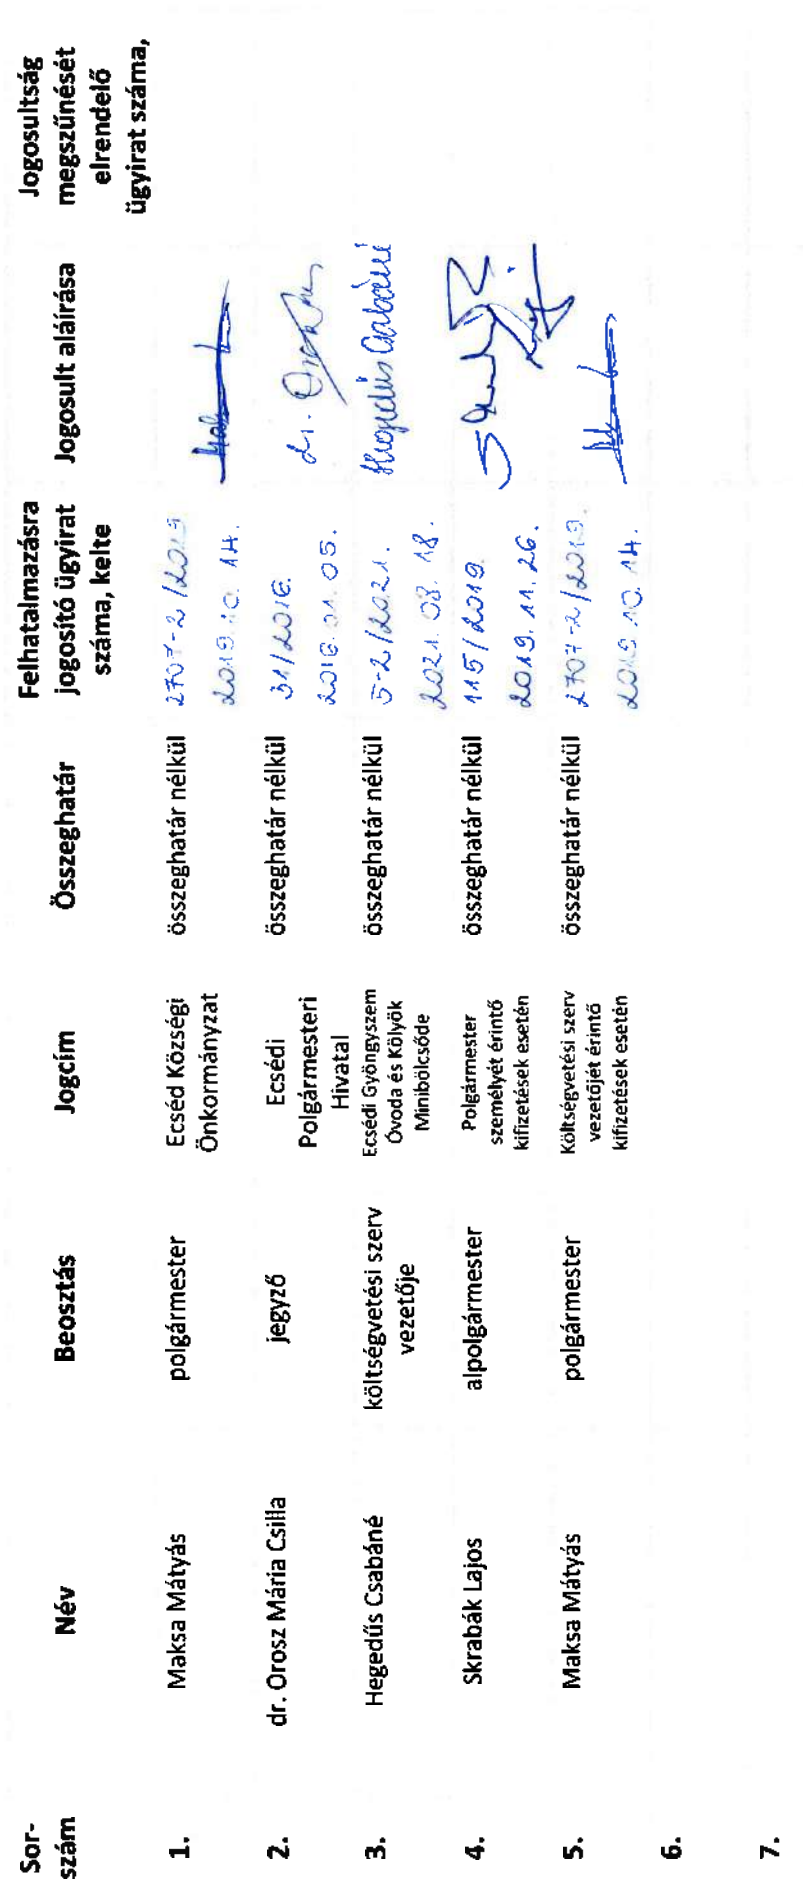 Sor-
szám
Név
Beosztás
Jogcím
Összeghatár
Felhatalmazásra
jogosító ügyirat
száma, kelte
Jogosult aláírása
Jogosultság
megszűnését
elrendelő
ügyirat száma,
1.
Maksa Mátyás
polgármester
Ecséd Községi
Önkormányzat
összeghatár nélkül
2707-2/2019
2019.10.14.
2.
dr. Orosz Mária Csilla
jegyző
Ecsédi
Polgármesteri
Hivatal
összeghatár nélkül
31/2016.
2016.01.05.
dr. Orosz
3.
Hegedűs Csabáné
költségvetési szerv
vezetője
Ecsédi Gyöngyszem
Óvoda és Kölyök
Minibölcsőde
összeghatár nélkül
5-2/2021.
2021.08.18.
Hegedűs Csabáné
4.
Skrabák Lajos
alpolgármester
Polgármester
személyét érintő
kifizetések esetén
összeghatár nélkül
115/2019.
2019.11.26.
5.
Maksa Mátyás
polgármester
Költségvetési szerv
vezetőjét érintő
kifizetések esetén
összeghatár nélkül
2707-2/2019.
2019.10.14.
6.
7.